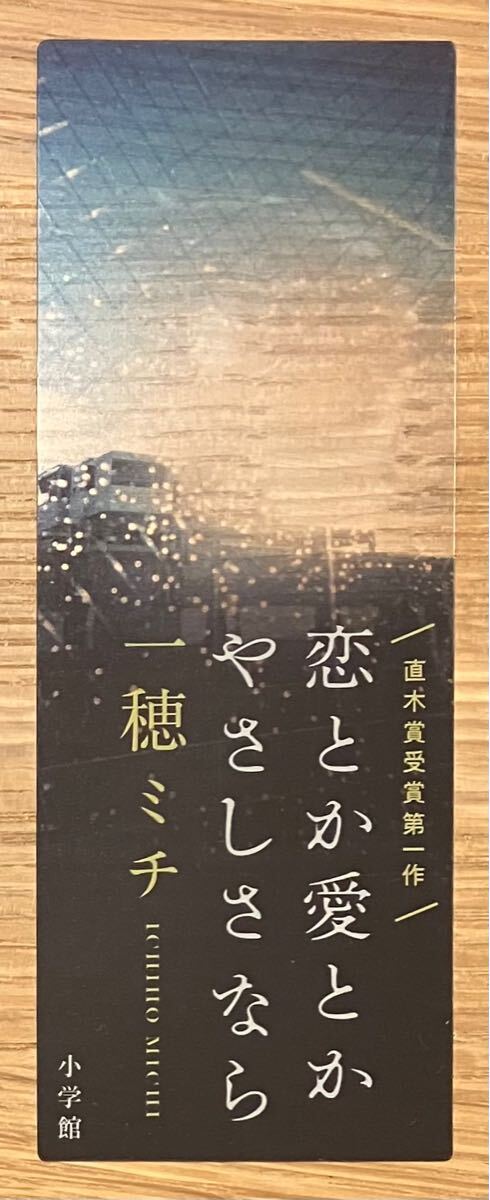 直木賞受賞第一作
恋とか愛とか
やさしさなら
一穂ミチ
ICHIHO MICHI
小学館